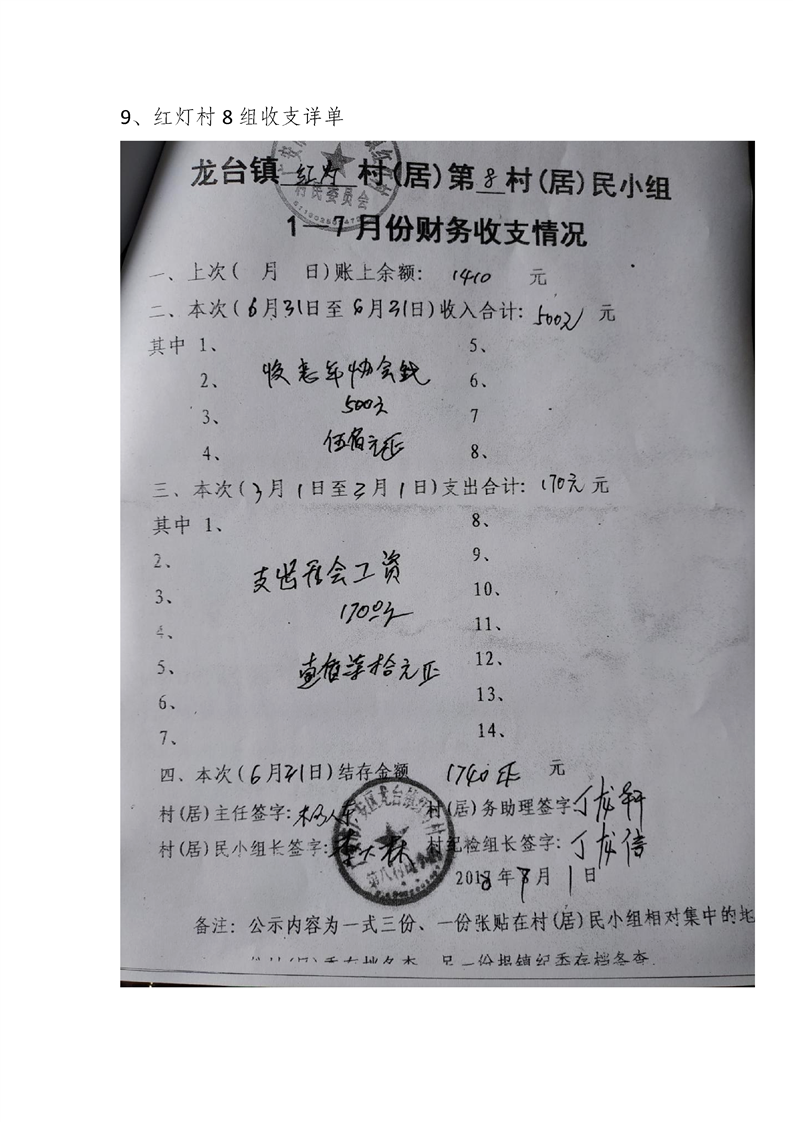 9、红灯村8组收支详单
龙台镇 红灯 村(居)第 8 村(居)民小组
村民委员会
1—7月份财务收支情况
一、上次( 月 日)账上余额: 1410 元
二、本次(6月31日至6月31日)收入合计: 500元 元
其中 1、 5、
2、 收老年协会钱 6、
3、 500元 7
4、 伍佰元正 8、
三、本次(3月1日至3月1日)支出合计: 170元 元
其中 1、 8、
2、 支出 会工资 9、
3、 170元 10、
4、 11、
5、 壹佰柒拾元正 12、
6、 13、
7、 14、
四、本次(6月31日)结存金额 1740 元
村(居)主任签字: 村(居)务助理签字 丁龙轩
村(居)民小组长签字: 村纪检组长签字: 丁龙信
2018年8月1日
备注: 公示内容为一式三份、一份张贴在村(居)民小组相对集中的地
另一份报镇纪委存档备查